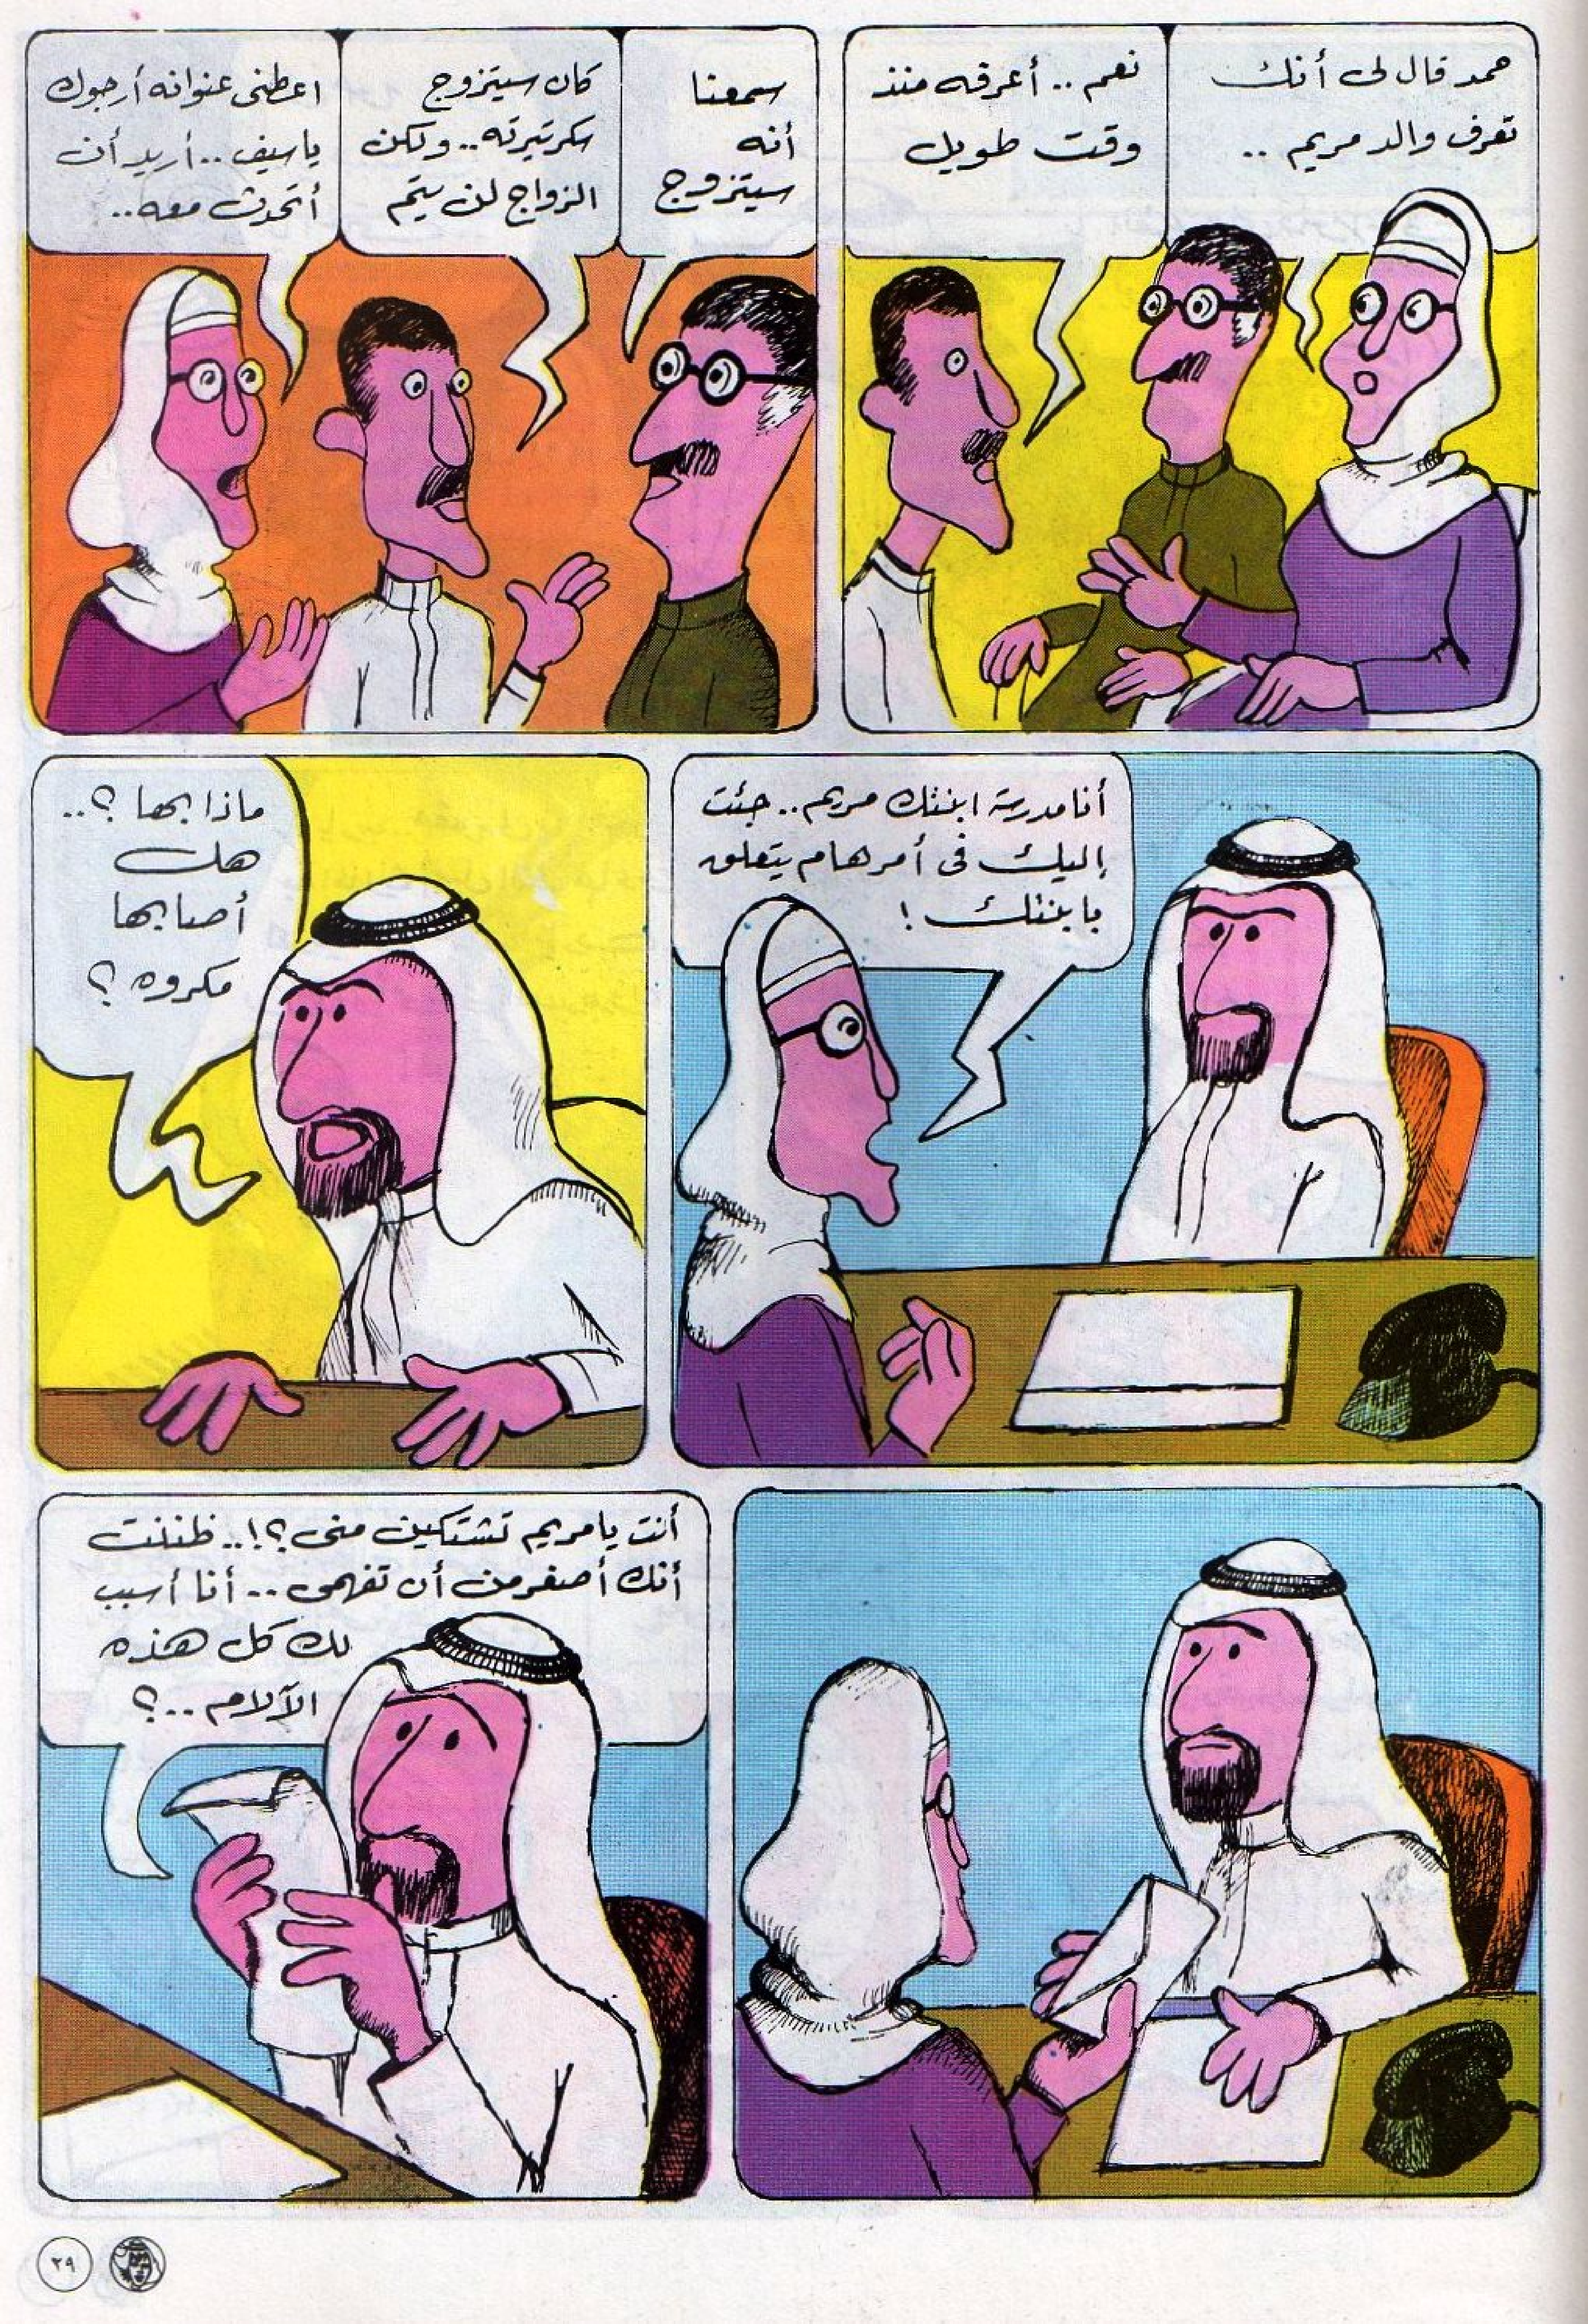 حمد قال لى أنك
تعرف والد مريم ..
نعم .. أعرفه منذ
وقت طويل
سمعنا
أنه
سيتزوج
كان سيتزوج
سكرتيرته .. ولكن
الزواج لن يتم
اعطنى عنوانه أرجوك
ياسيف .. أريد أن
أتحدث معه ..
أنا مدرسة ابنتك مريم .. جئت
إليك فى أمر هام يتعلق
بابنتك !
ماذا بها ؟ ..
هل
أصابها
مكروه ؟
أنت يا مريم تشتكين منى ؟! .. ظننت
أنك أصغر من أن تفهمى .. أنا أسبب
لك كل هذه
الآلام .. ؟
٢٩